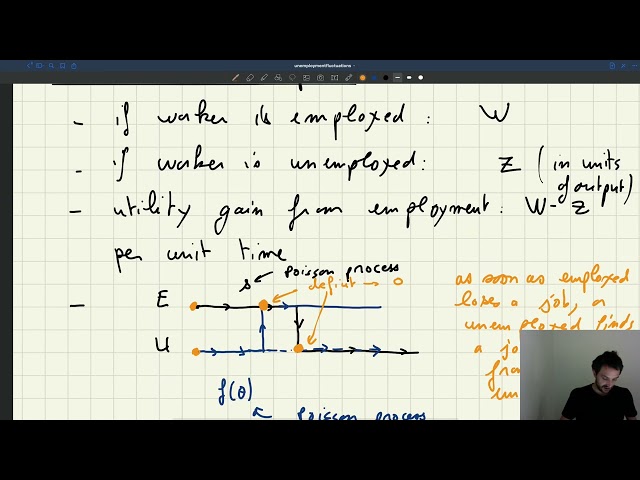 unemploymentfluctuations
- if worker is employed: W
- if worker is unemployed: Z (in units of output)
- utility gain from employment: W-Z
per unit time
s ← poisson process
deficit → 0
- E
U
f(θ)
← poisson process
as soon as employed
loses a job, a
unemployed finds
a jo